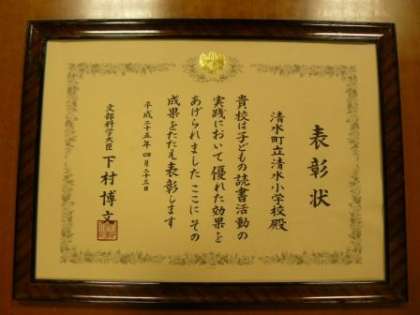 表彰状
清水町立清水小学校殿
貴校は子どもの読書活動の
実践において優れた効果を
あげられました ここにその
成果をたたえ表彰します
平成二十五年四月二十三日
文部科学大臣 下村博文